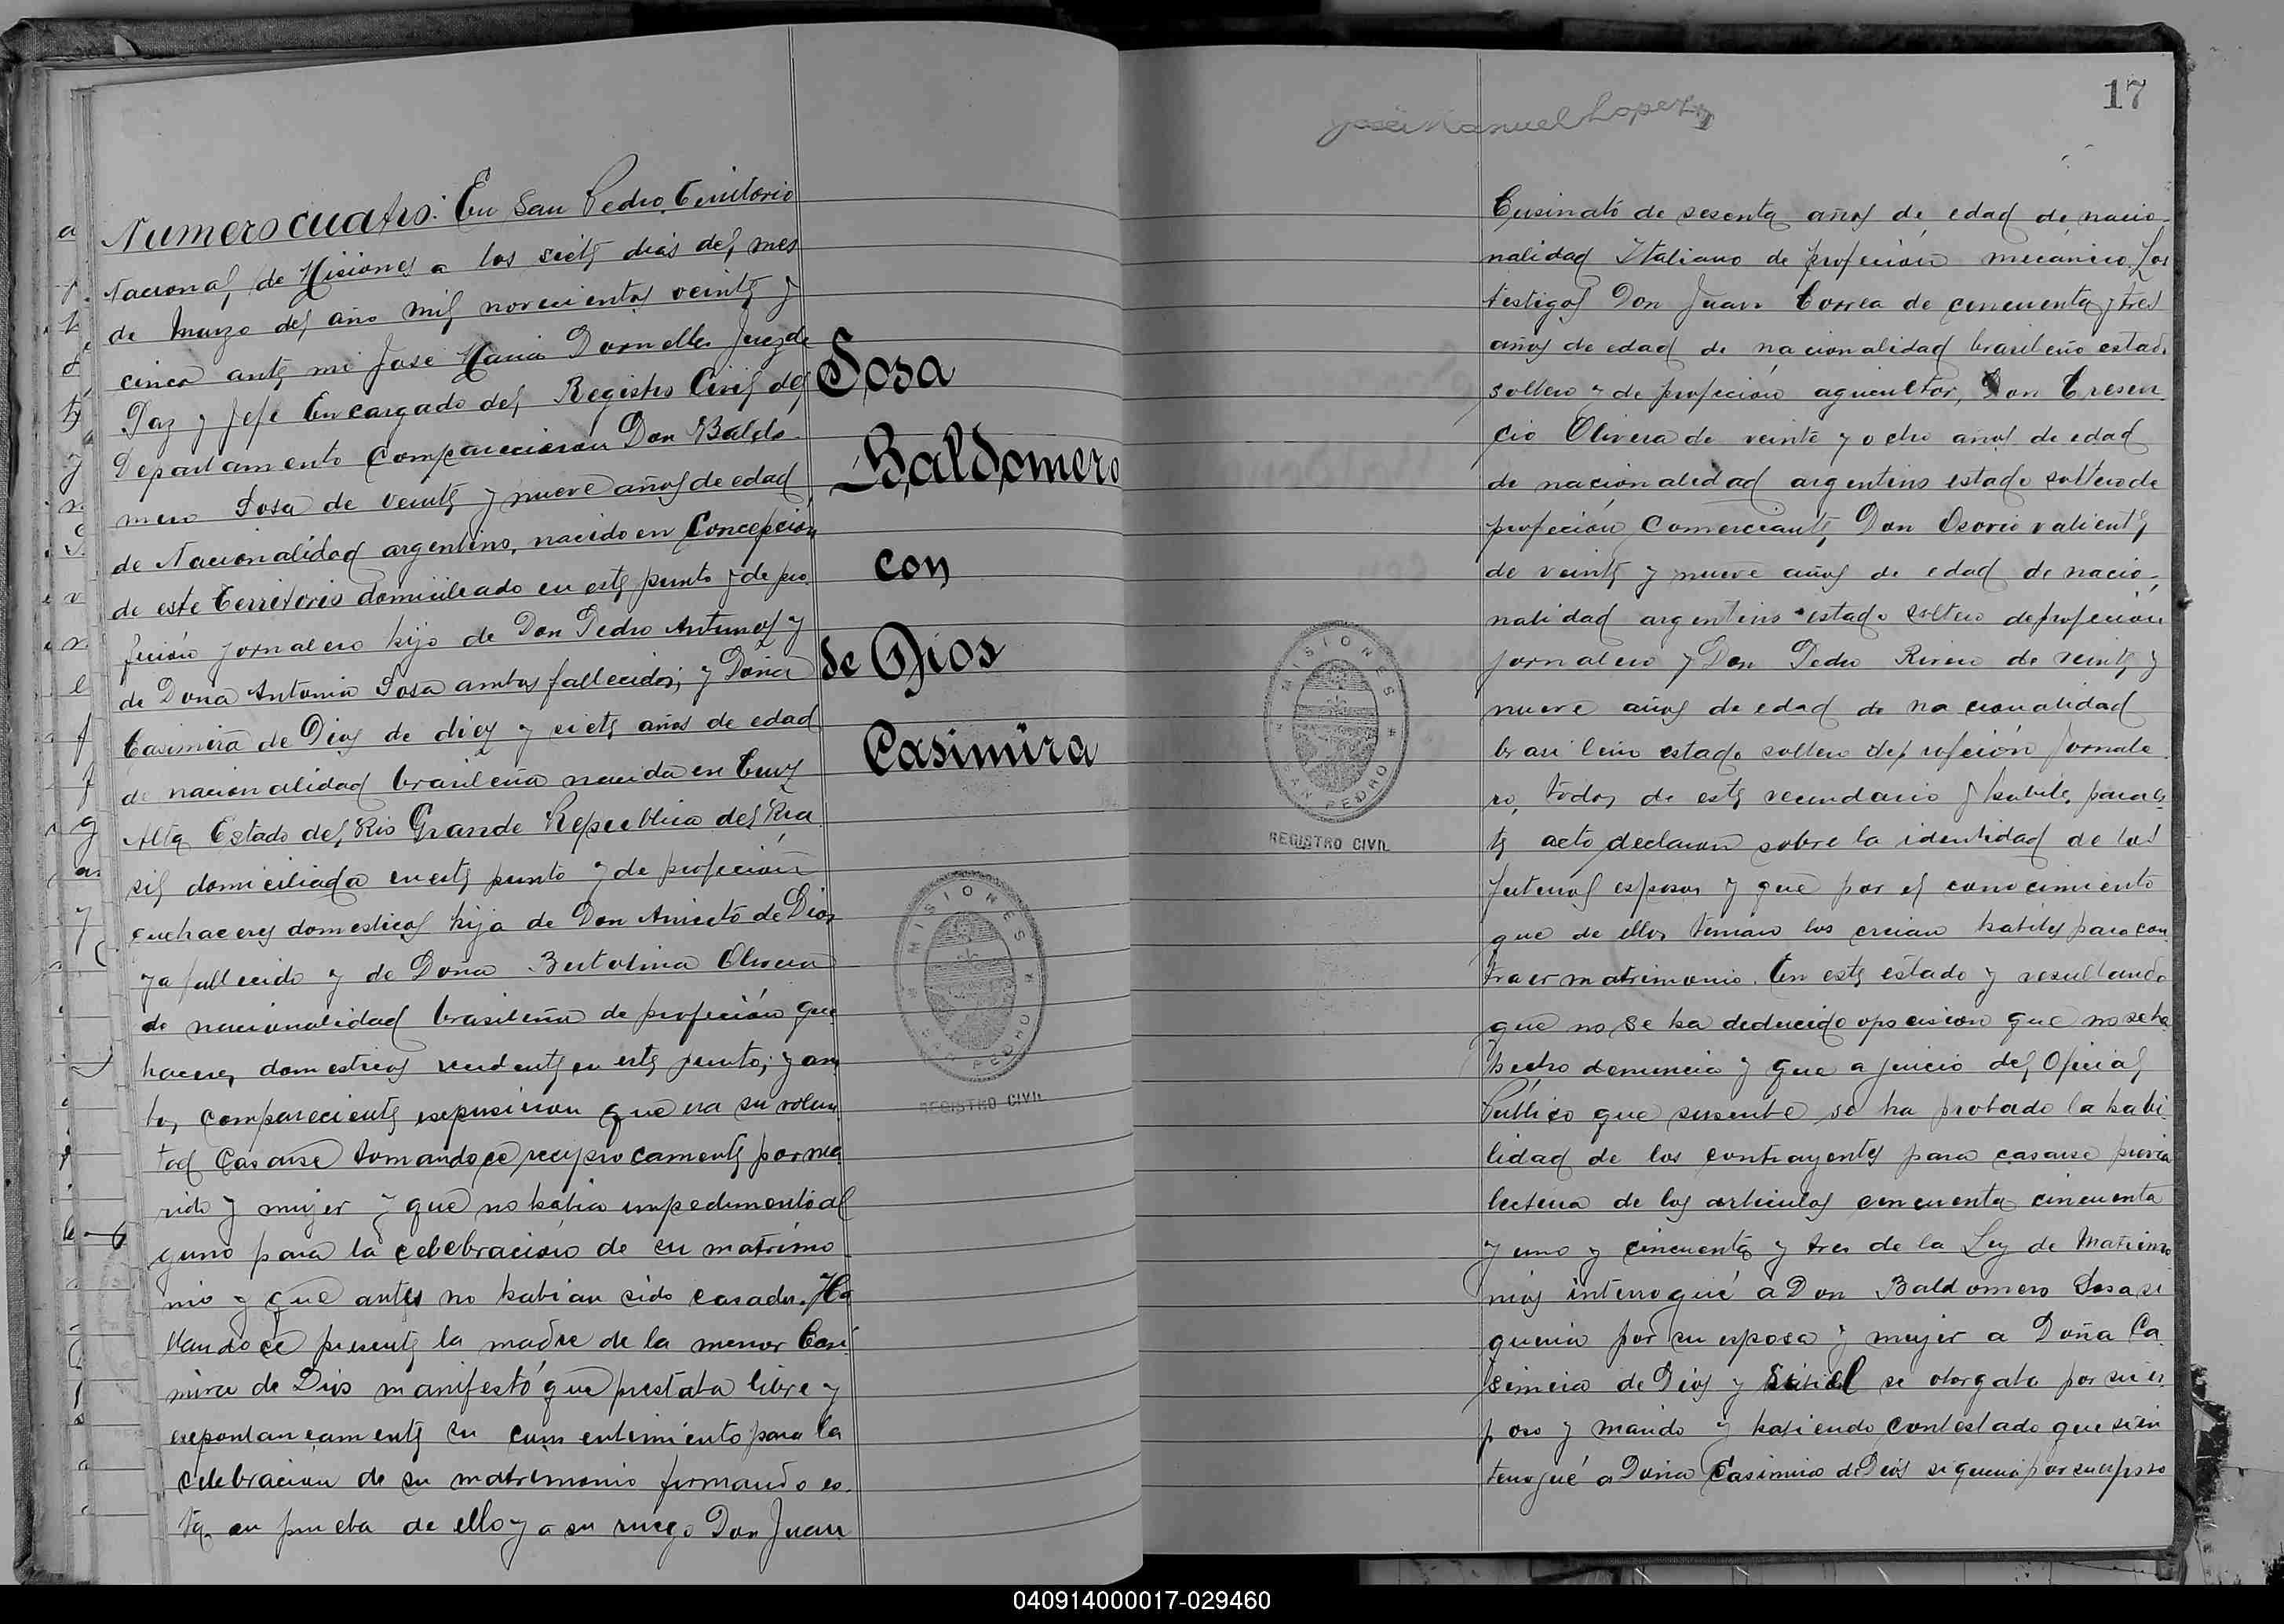 Numero cuatro: En San Pedro, Territorio
Nacional, de Misiones a los siete dias del mes
de Marzo del año mil novecientos veinte y
cinco ante mi José Maria Dornelles Juez de
Paz y Jefe Encargado del Registro Civil del
Departamento Comparecieron Don Baldo-
mero Sosa de veinte y nueve años de edad
de Nacionalidad argentino, nacido en Concepción
de este Territorio domiciliado en este punto y de pro-
feción jornalero hijo de Don Pedro Antunes y
de Doña Antonia Sosa ambos fallecidos; y Doña
Casimira de Dios de diez y siete años de edad
de nacionalidad brasileña nacida en Cruz
Alta Estado del Rio Grande Republica del Bra
sil domiciliada en este punto y de profeción
quehaceres domesticos hija de Don Aniceto de Dios
ya fallecido y de Doña Bertolina Olivera
de nacionalidad brasileña de profeción que
haceres domesticos recidente en este punto; y am
bos comparecientes expusieron que era su volun
tad Casarse tomandoce reciprocamente por ma
rido y mujer y que no habia impedimento al
guno para la celebración de su matrimo
nio y que antes no habian sido casados. Ha
llandoce presente la madre de la menor Casi
mira de Dios manifestó que prestaba libre y
espontaneamente su consentimiento para la
celebracion de su matrimonio firmando es-
ta en prueba de ello y a su ruego Don Juan
Sosa
Baldomero
con
de Dios
Casimira
MISIONES
SAN PEDRO
REGISTRO CIVIL
José Manuel Lopez
17
de sesenta años de edad de nacio-
nalidad Italiano de profeción mecánico. Los
testigos Don Juan Correa de cincuenta y tres
años de edad de nacionalidad brasileño estado
soltero y de profeción agricultor, Don Cresen
cio Olivera de veinte y ocho años de edad
de nacionalidad argentino estado soltero de
profeción Comerciante, Don Osorio valiente
de veinte y nueve años de edad de nacio-
nalidad argentino estado soltero de profeción
jornalero y Don Pedro de veinte y
nueve años de edad de nacionalidad
brasileño estado soltero de profeción jornale
ro, todos de este vecindario y habiles para es
te acto declaran sobre la identidad de los
futuros esposos y que por el conocimiento
que de ellos tenian los creian habiles para con
traer matrimonio. En este estado y resultando
que no se ha deducido oposicion que no se ha
hecho denuncia y que a juicio del Oficial
Publico que suscribe se ha probado la habi
lidad de los contrayentes para casarse previa
lectura de los articulos cincuenta cincuenta
y uno y cincuenta y tres de la Ley de Matrimo
nios interrogué a Don Baldomero Sosa si
queria por su esposa y mujer a Doña Ca
simira de Dios y si el se otorgaba por su es
poso y marido y habiendo contestado que si in
terrogué a Doña Casimira de Dios si queria por su esposo
MISIONES
SAN PEDRO
REGISTRO CIVIL
040914000017-029460